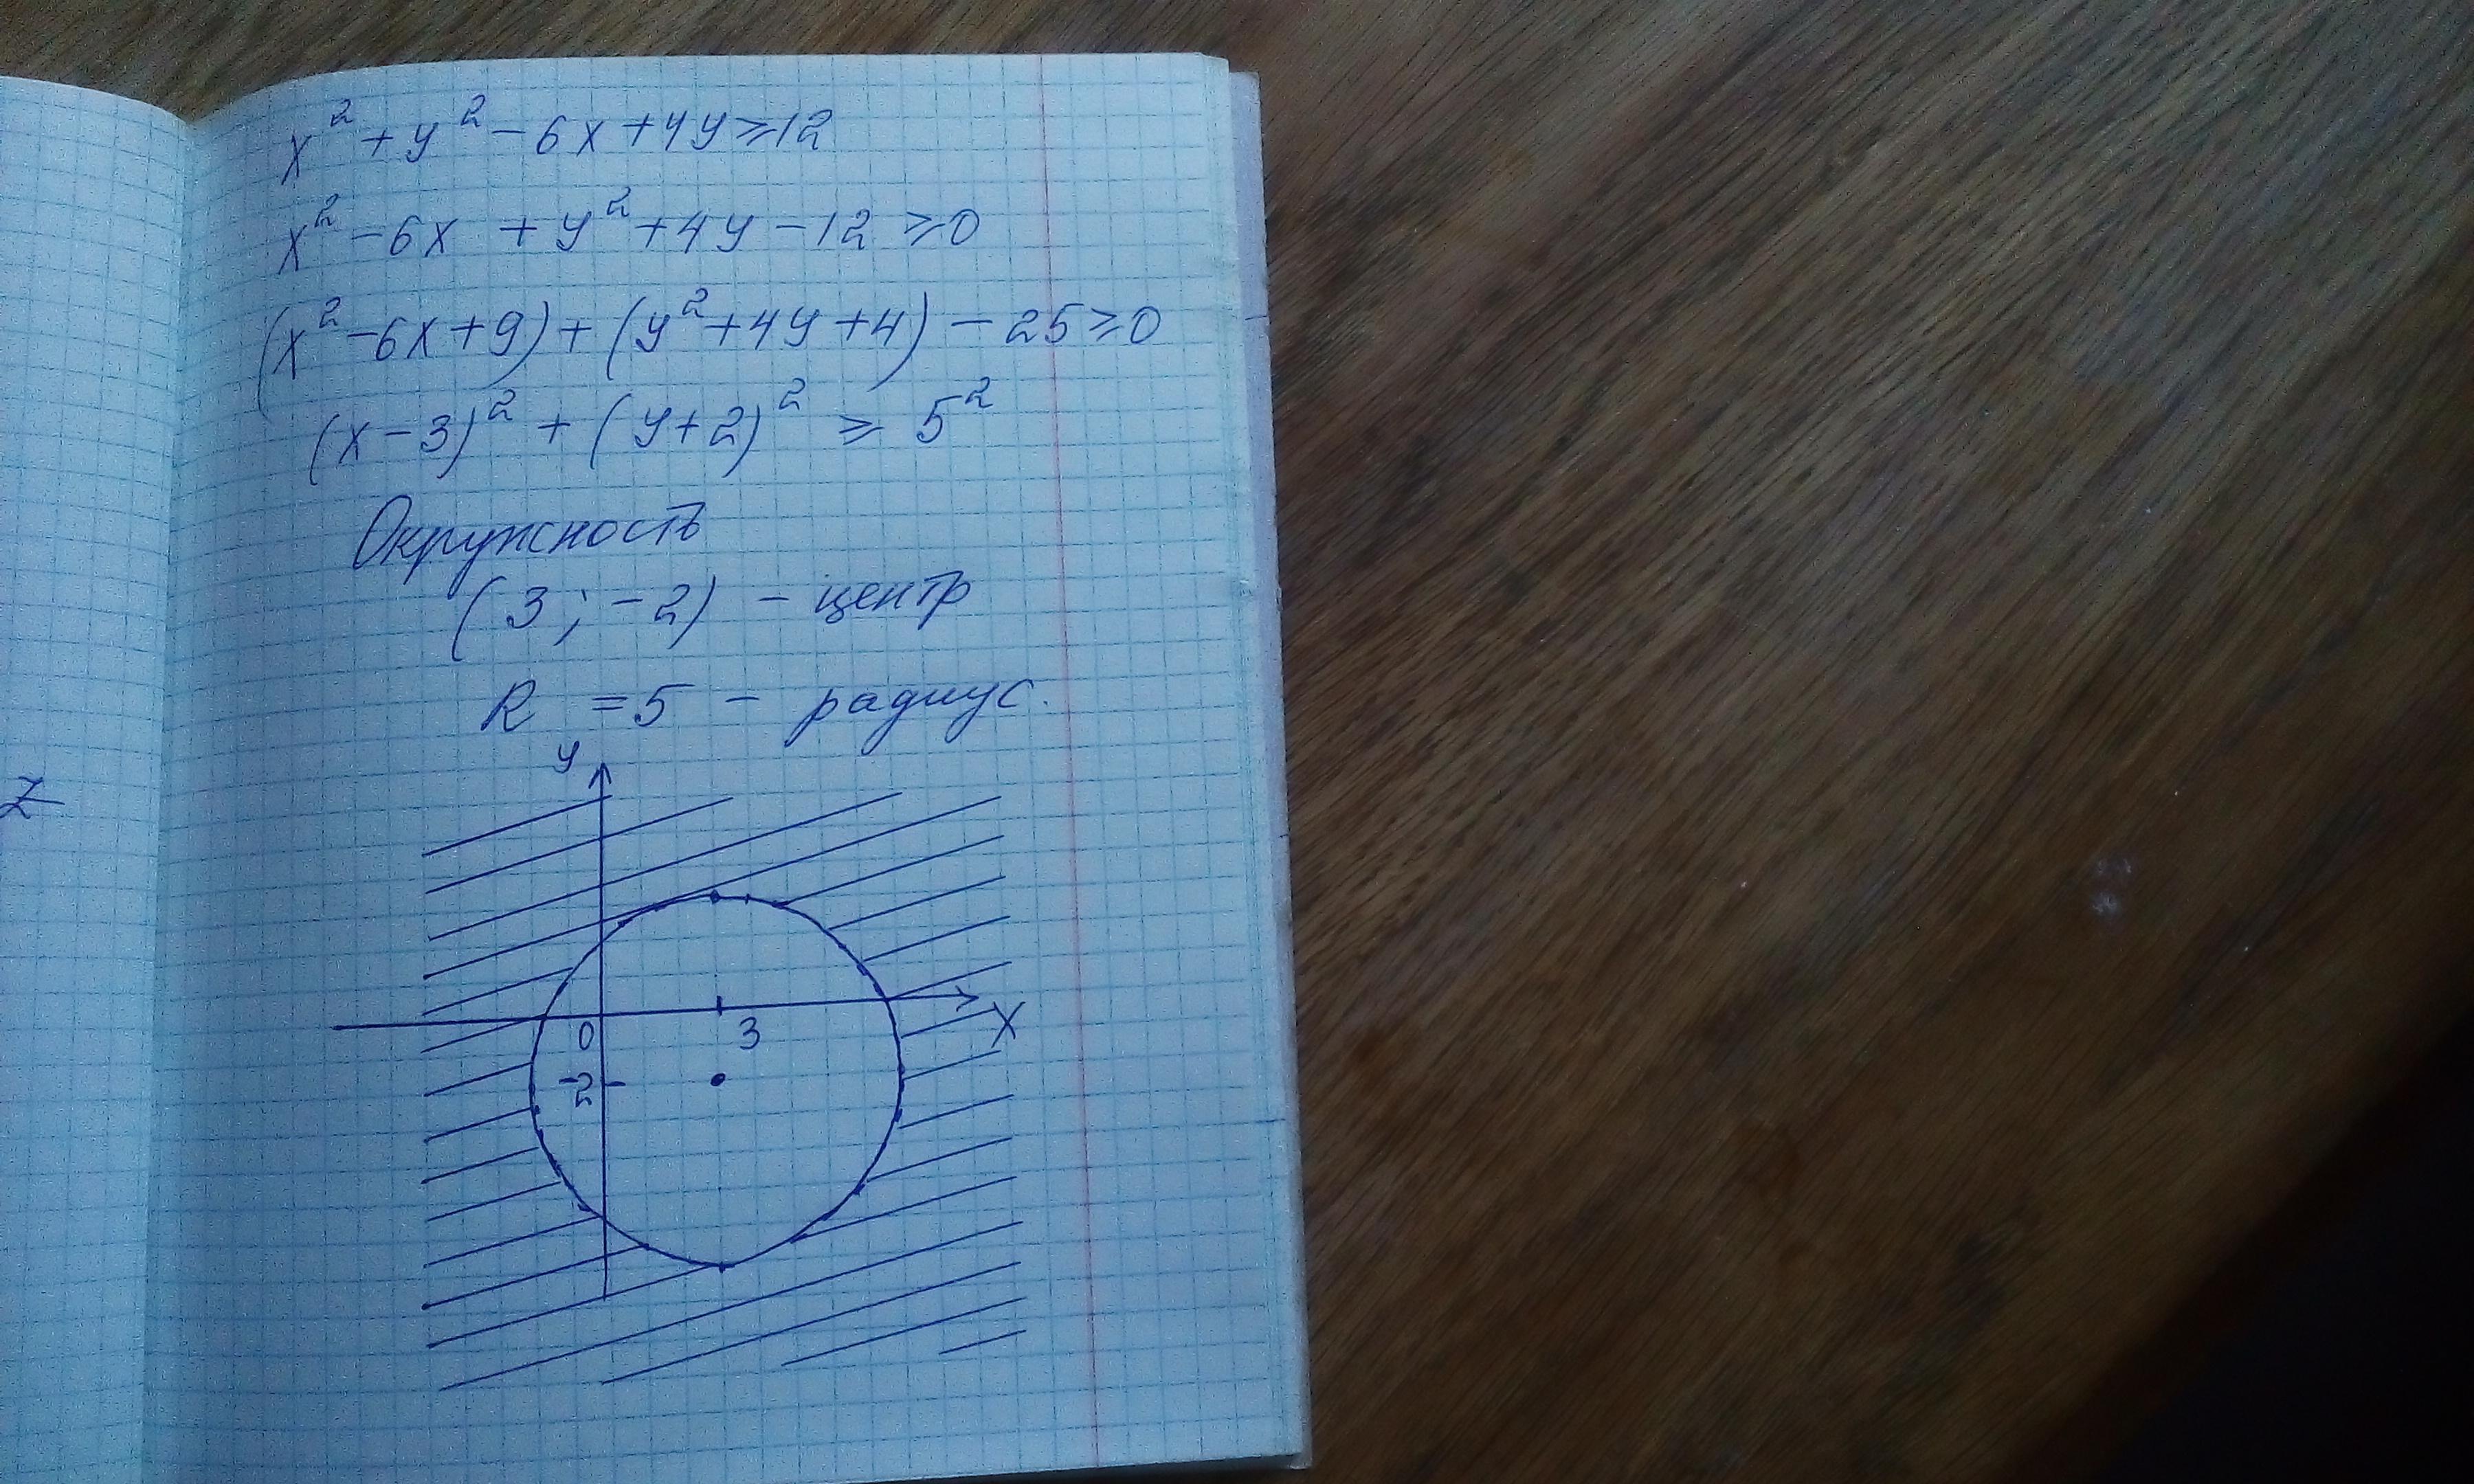 x² + y² - 6x + 4y ≥ 12
x² - 6x + y² + 4y - 12 ≥ 0
(x² - 6x + 9) + (y² + 4y + 4) - 25 ≥ 0
(x - 3)² + (y + 2)² ≥ 5²
Окружность
(3; -2) - центр
R = 5 - радиус.
y
z
0
3
X
-2